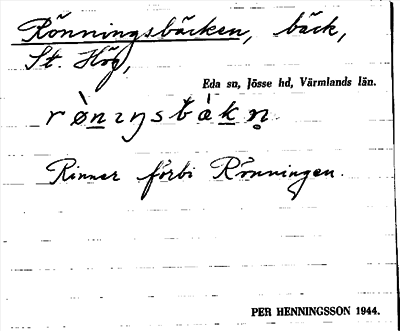 Rönningsbäcken, bäck,
St. Hög,
Eda sn, Jösse hd, Värmlands län.
rø̀nıŋsbæ̀kn̥
Rinner förbi Rönningen.
PER HENNINGSSON 1944.